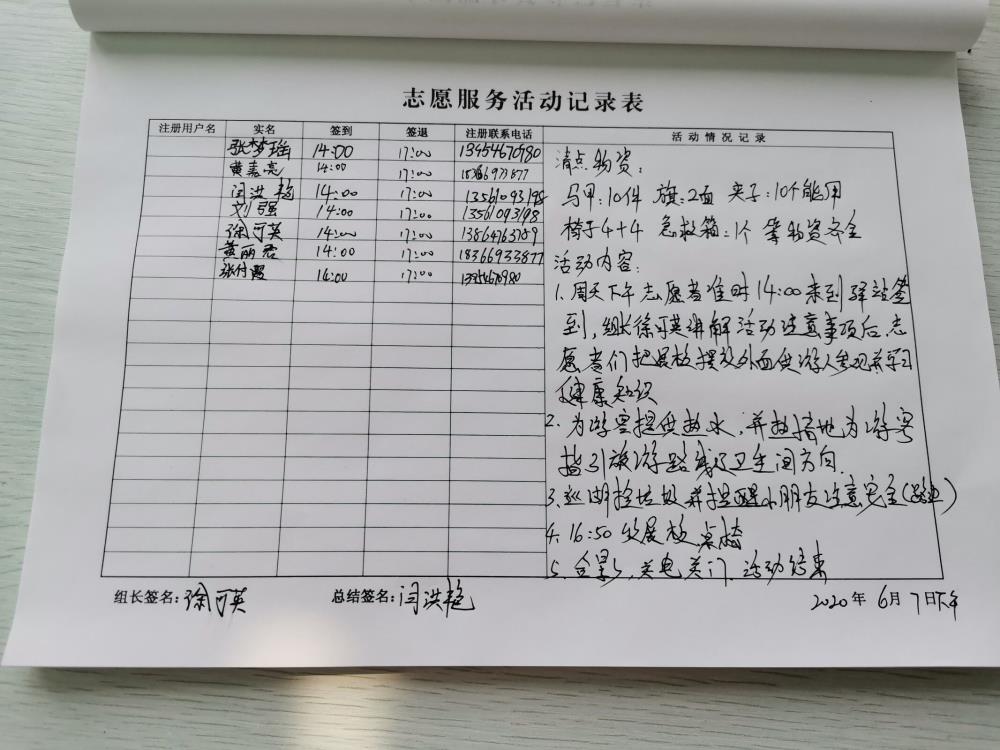 志愿服务活动记录表
注册用户名 实名 签到 签退 注册联系电话 活动情况记录
张梦瑶 14:00 17:00 13954670980
黄嘉亮 14:00 17:00
闫洪艳 14:00 17:00
刘强 14:00 17:00 13561093198
徐可英 14:00 17:00
黄丽君 14:00 17:00 18366933877
张付霞 14:00 17:00 13954670980
清点物资：
马甲：10件 旗：2面 夹子：10个能用
椅子4+4 急救箱：1个 等物资齐全
活动内容：
1、周天下午志愿者准时14:00来到驿站签
到，组长徐可英讲解活动注意事项后，志
愿者们把展板摆放外面供游人参观并学习
健康知识
2、为游客提供热水，并热情地为游客
指引旅游路线及卫生间方向.
3、巡湖捡垃圾并提醒小朋友注意安全
4、16:50收展板、桌椅
5、合影，关电关门、活动结束
组长签名：徐可英 总结签名：闫洪艳 2020年6月7日下午